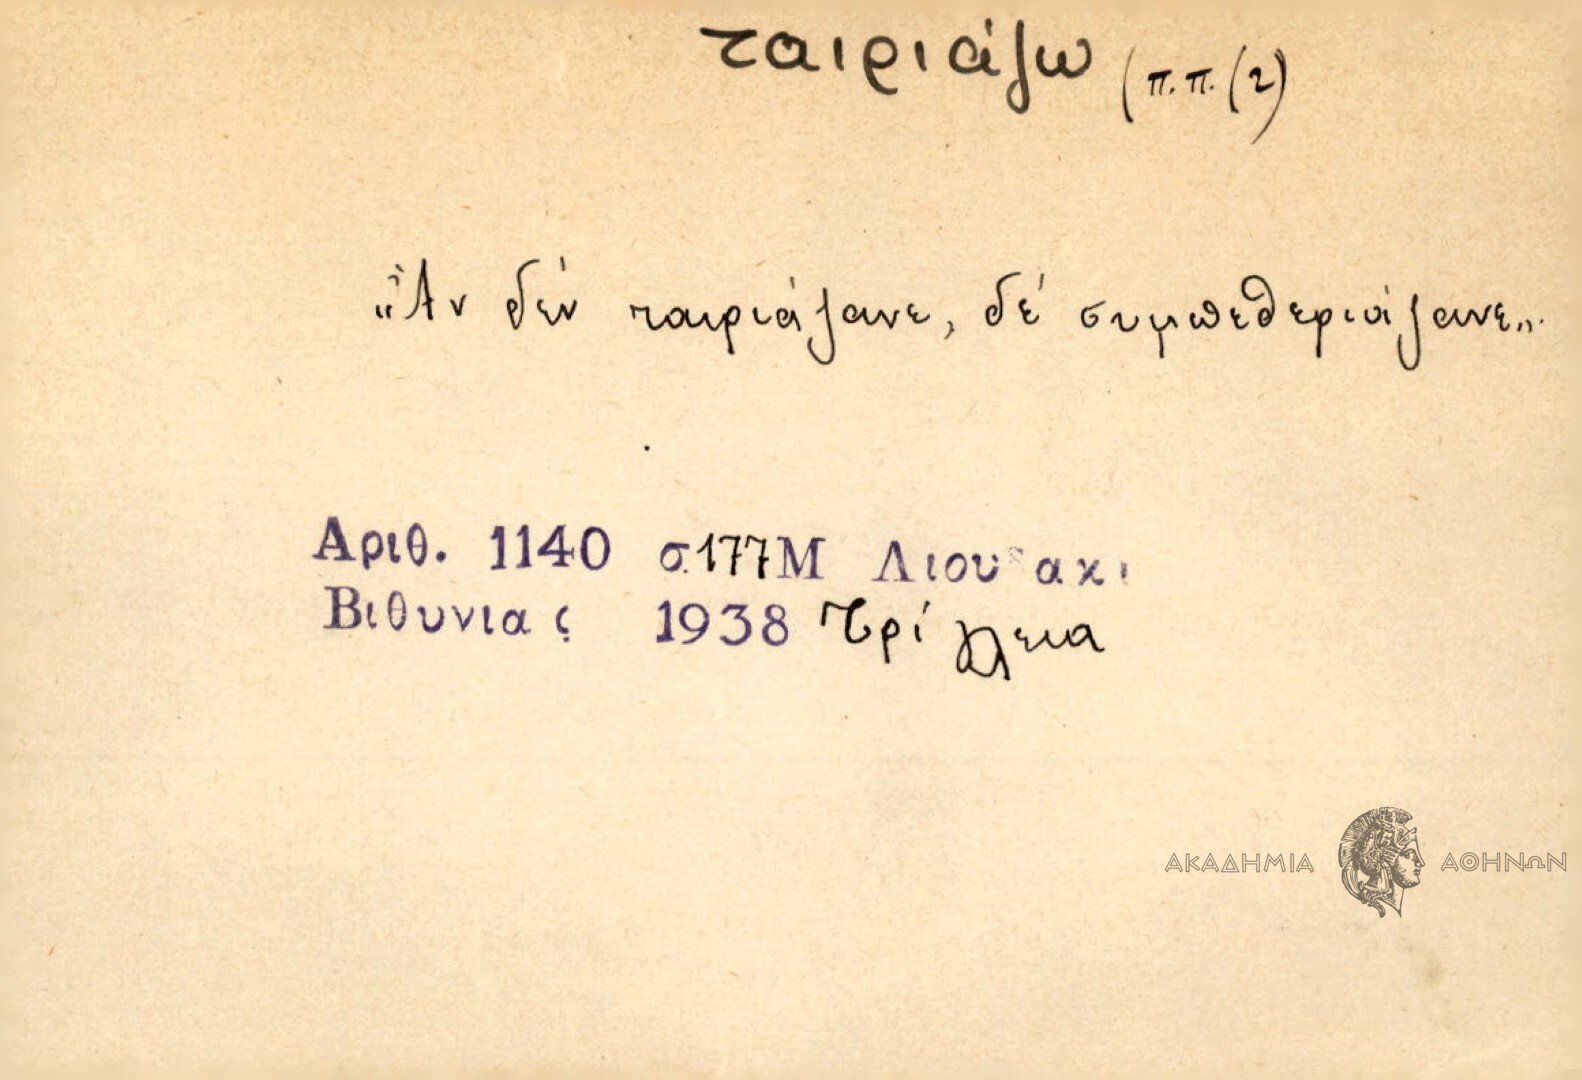 ταιριάζω (π.π. (2)
"Ἄν δέν ταιριάζανε, δέ συμπεθεριάζανε".
Αριθ. 1140 σ.177 Μ
Βιθυνιας 1938 Τρίγλεια
ΑΚΑΔΗΜΙΑ ΑΘΗΝΩΝ